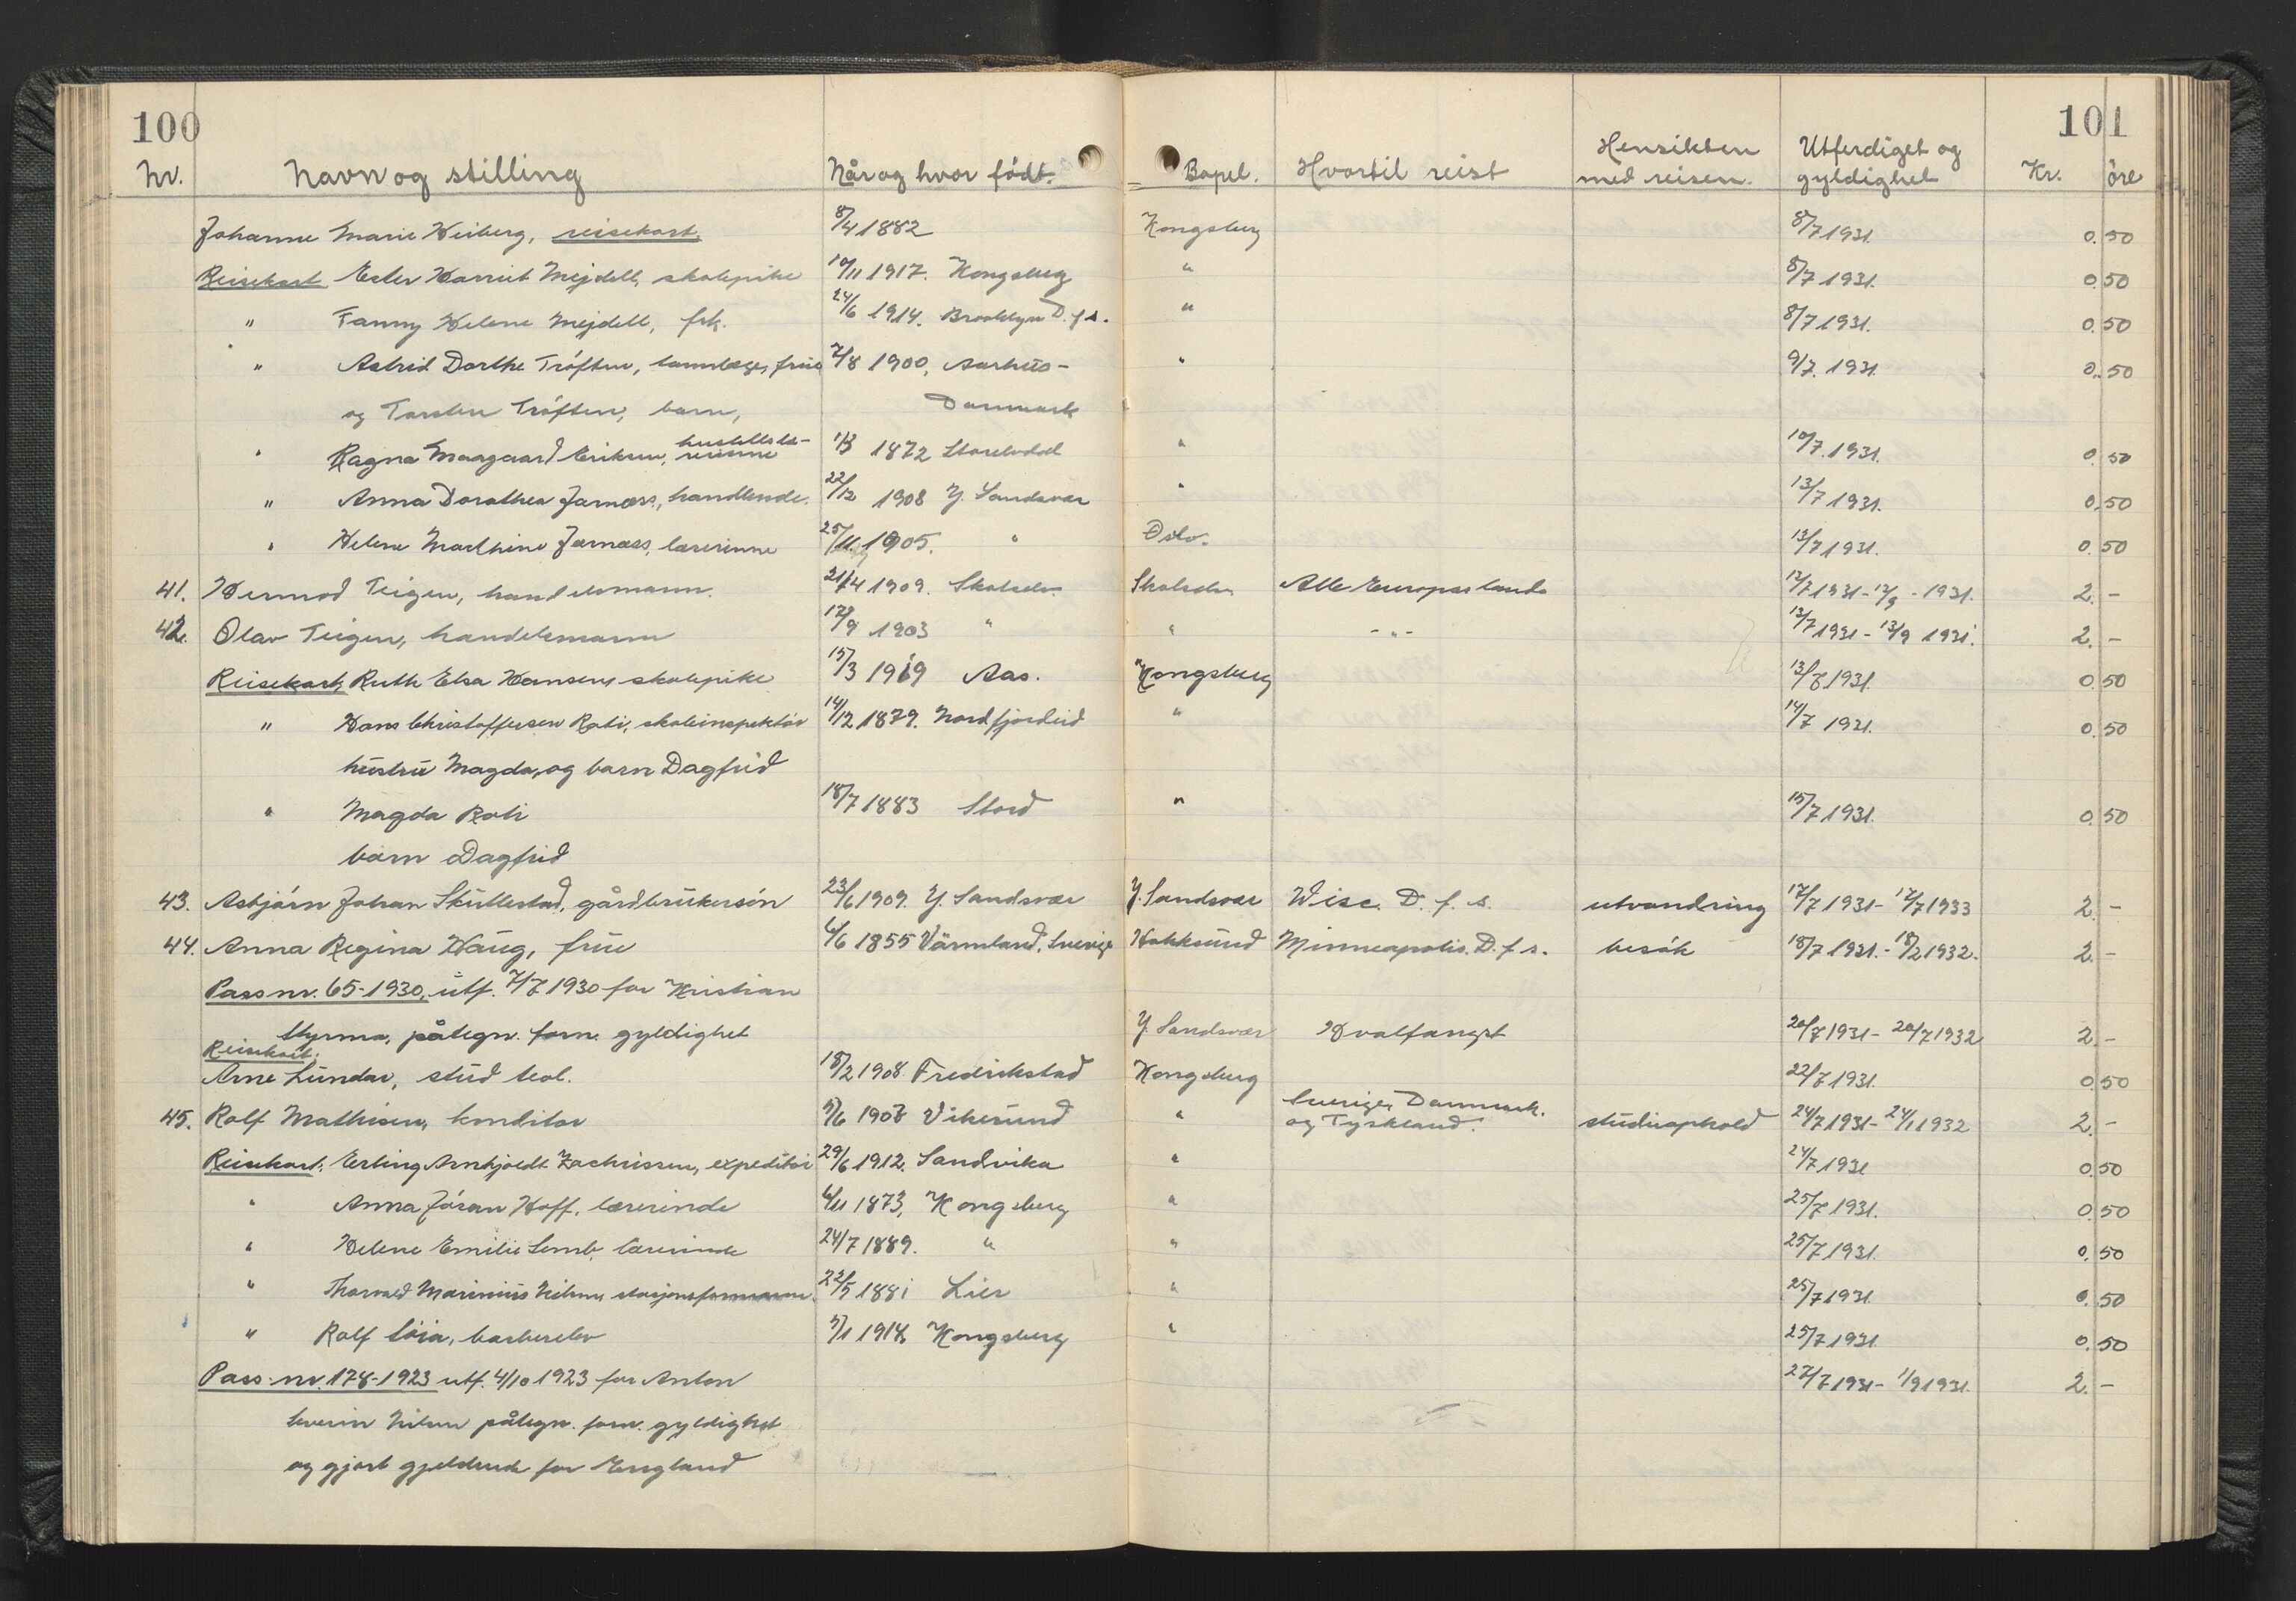 100 101
Nr. Navn og stilling Når og hvor født. Bopel. Hvortil reist Hensikten med reisen. Utferdiget og gyldighet Kr. øre
Johanne Marie Heiberg, reisekort. 8/4 1882 Kongsberg 8/7 1931. 0.50
Reisekort Ester Harriet Mejdell, skolepike 10/11 1917. Kongsberg " 8/7 1931. 0.50
" Fanny Helene Mejdell, frk. 24/6 1914. Brooklyn D.f.s. " 8/7 1931. 0.50
" Astrid Dorthe Tróften, tannlæge, frue 7/8 1900, Aarhus- " 9/7. 1931. 0.50
og Torsten Tróften, barn, Danmark
" Ragna Maagaard Eriksen, husstells læ-
rerinne 1/3 1872 Storelvdal " 10/7. 1931. 0.50
" Anna Dorothea Jarnæss, handlende. 22/12 1908 Y. Sandsvær " 13/7 1931. 0.50
" Helene Marthine Jarnæss, lærerinne 25/11 1905. " Oslo. 13/7 1931. 0.50
41. Hermod Teigen, handelsmann. 21/4 1909. Skotselv. Skotselv Alle Europas lande 13/7 1931 - 13/9 - 1931. 2.-
42. Olav Teigen, handelsmann 17/9 1903 " " -"- 13/7 1931 - 13/9 1931. 2.-
Reisekort, Ruth Elsa Hansen, skolepike 15/3 1919 Aas. Kongsberg 13/7 1931. 0.50
" Hans Christoffersen Roti, skoleinspektør 14/12 1879. Nordfjordeid " 14/7 1931. 0.50
hustru Magda, og barn Dagfrid
" Magda Roti 18/7 1883 Stord " 15/7 1931. 0.50
barn Dagfrid
43. Asbjørn Johan Skullestad, gårdbrukersøn 23/6 1909. Y. Sandsvær Y. Sandsvær Wisc. D.f.s. utvandring 17/7 1931 - 17/7 1933 2.-
44. Anna Regina Haug, frue 6/6 1855 Värmland, Sverige Hokksund Minneapolis. D.f.s. besøk 18/7 1931. - 18/2 1932. 2.-
Pass nr. 65-1930, utf. 7/7 1930 for Kristian
Styrma, påtegn. forn. gyldighet Y. Sandsvær Hvalfangst 20/7 1931 - 20/7 1932 2.-
Reisekort.
Arne Lundar, stud teol. 18/2 1908. Fredrikstad Kongsberg 22/7 1931. 0.50
45. Rolf Mathisen, konditor 5/6 1907 Vikesund " Sverige, Danmark.
og Tyskland. studieophold 24/7 1931 - 24/1 1932 2.-
Reisekort. Erling Arnkjeldt Zachrissen, expeditør 29/6 1912. Sandvika " 24/7 1931 0.50
" Anna Jóran Hoff, lærerinde 6/11 1873, Kongsberg " 25/7 1931. 0.50
" Helene Emilie Lemb, lærerinde 24/7 1889. " " 25/7 1931. 0.50
" Thorvald Marinius Nilsen, stasjonsformann. 22/5 1881 Lier " 25/7 1931. 0.50
" Rolf barberelev 5/1 1914 Kongsberg " 25/7 1931. 0.50
Pass nr. 178-1923 utf. 4/10 1923 for Anton 27/7 1931 - 1/9 1931. 2.-
Severin Nilsen påtegn. forn. gyldighet
og gjort gjeldende for England